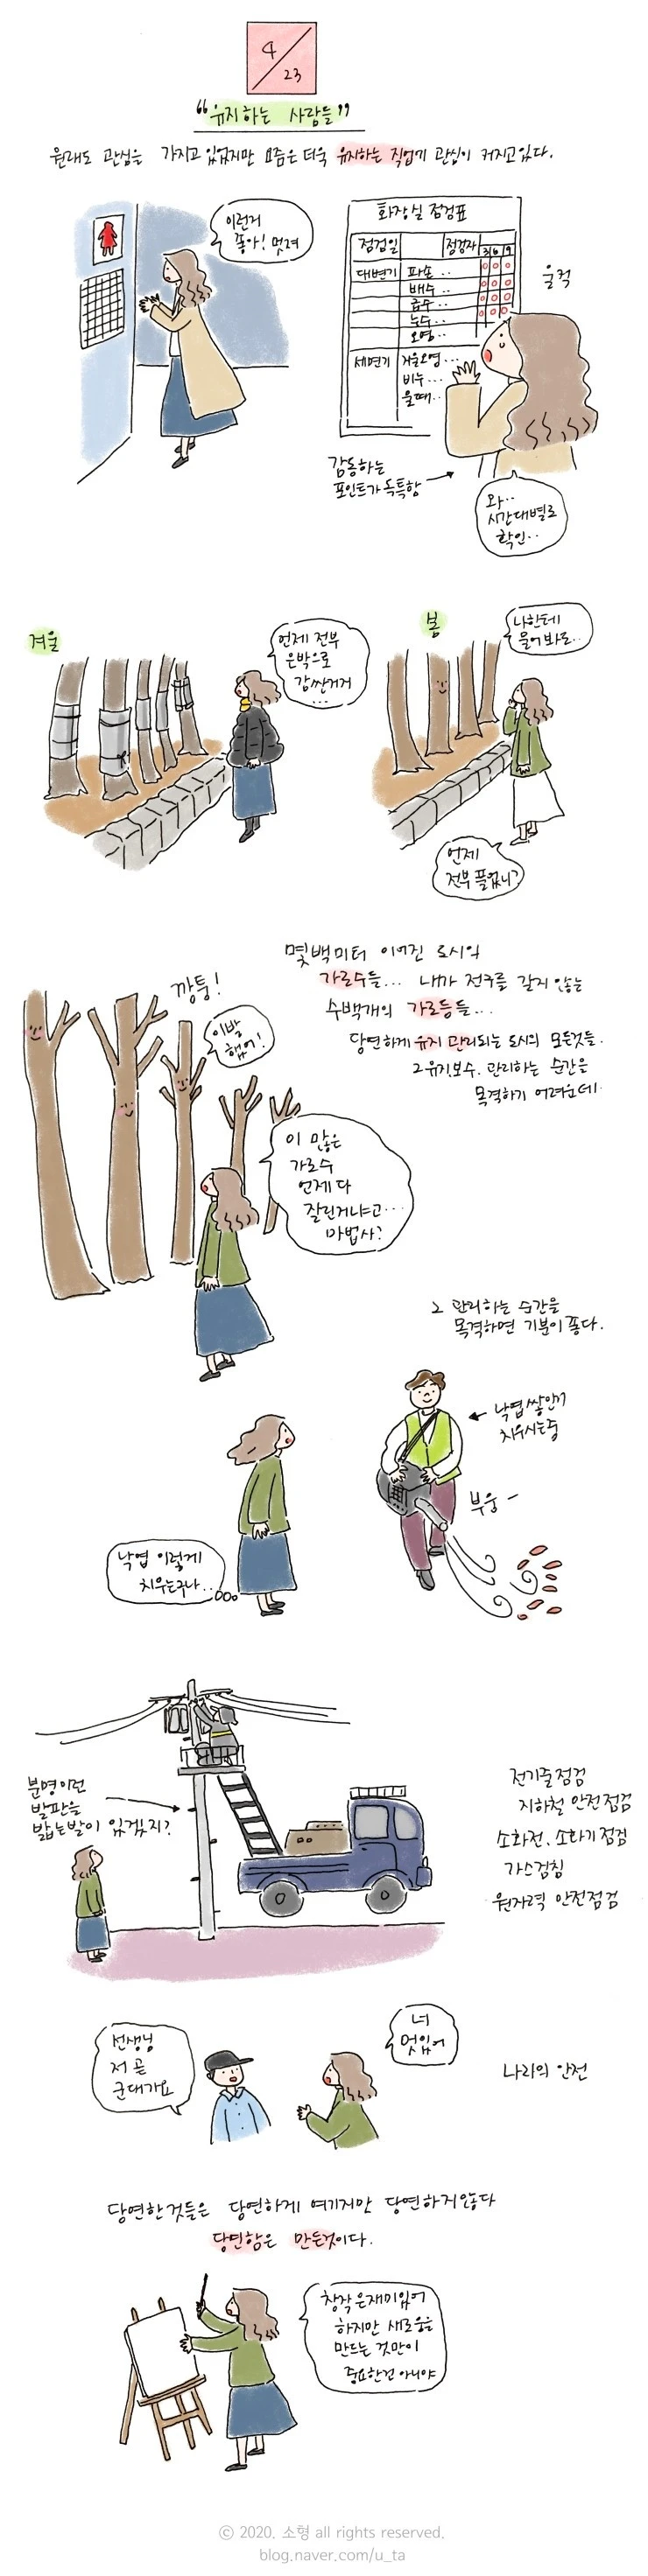 4/23
"유지하는 사람들"
원래도 관심을 가지고 있었지만 요즘은 더욱 유지하는 직업에 관심이 커지고있다.
이런거
좋아! 멋져
화장실 점검표
점검일 점검자 3 6 9
대변기 파손..
배수..
급수..
누수..
오염..
세면기 거울오염...
비누...
물때..
울컥
감동하는
포인트가 독특함
와..
시간대별로
확인..
겨울
언제 전부
은박으로
감싼거지
...
봄
나한테
물어봐도..
언제
전부 풀었니?
몇백미터 이어진 도시의
가로수들... 내가 전구를 갈지 않는
수백개의 가로등들...
당연하게 유지 관리되는 도시의 모든것들.
그유지보수. 관리하는 순간은
목격하기 어려운데
깡퉁!
이발
했어!
이 많은
가로수
언제 다
잘린거냐고...
마법사?
그 관리하는 순간을
목격하면 기분이 좋다.
낙엽쌓인거
치우시는중
부웅-
낙엽 이렇게
치우는구나..
분명이런
발판을
밟는발이 있겠지?
전기줄점검
지하철 안전점검
소화전, 소화기점검
가스검침
원자력 안전점검
선생님
저 곧
군대가요
너
멋있어
나라의 안전
당연한것들은 당연하게 여기지만 당연하지않다
당연함은 만든것이다.
창작은재미있어
하지만 새로움을
만드는 것만이
중요한건 아니야
© 2020. 소형 all rights reserved.
blog.naver.com/u_ta